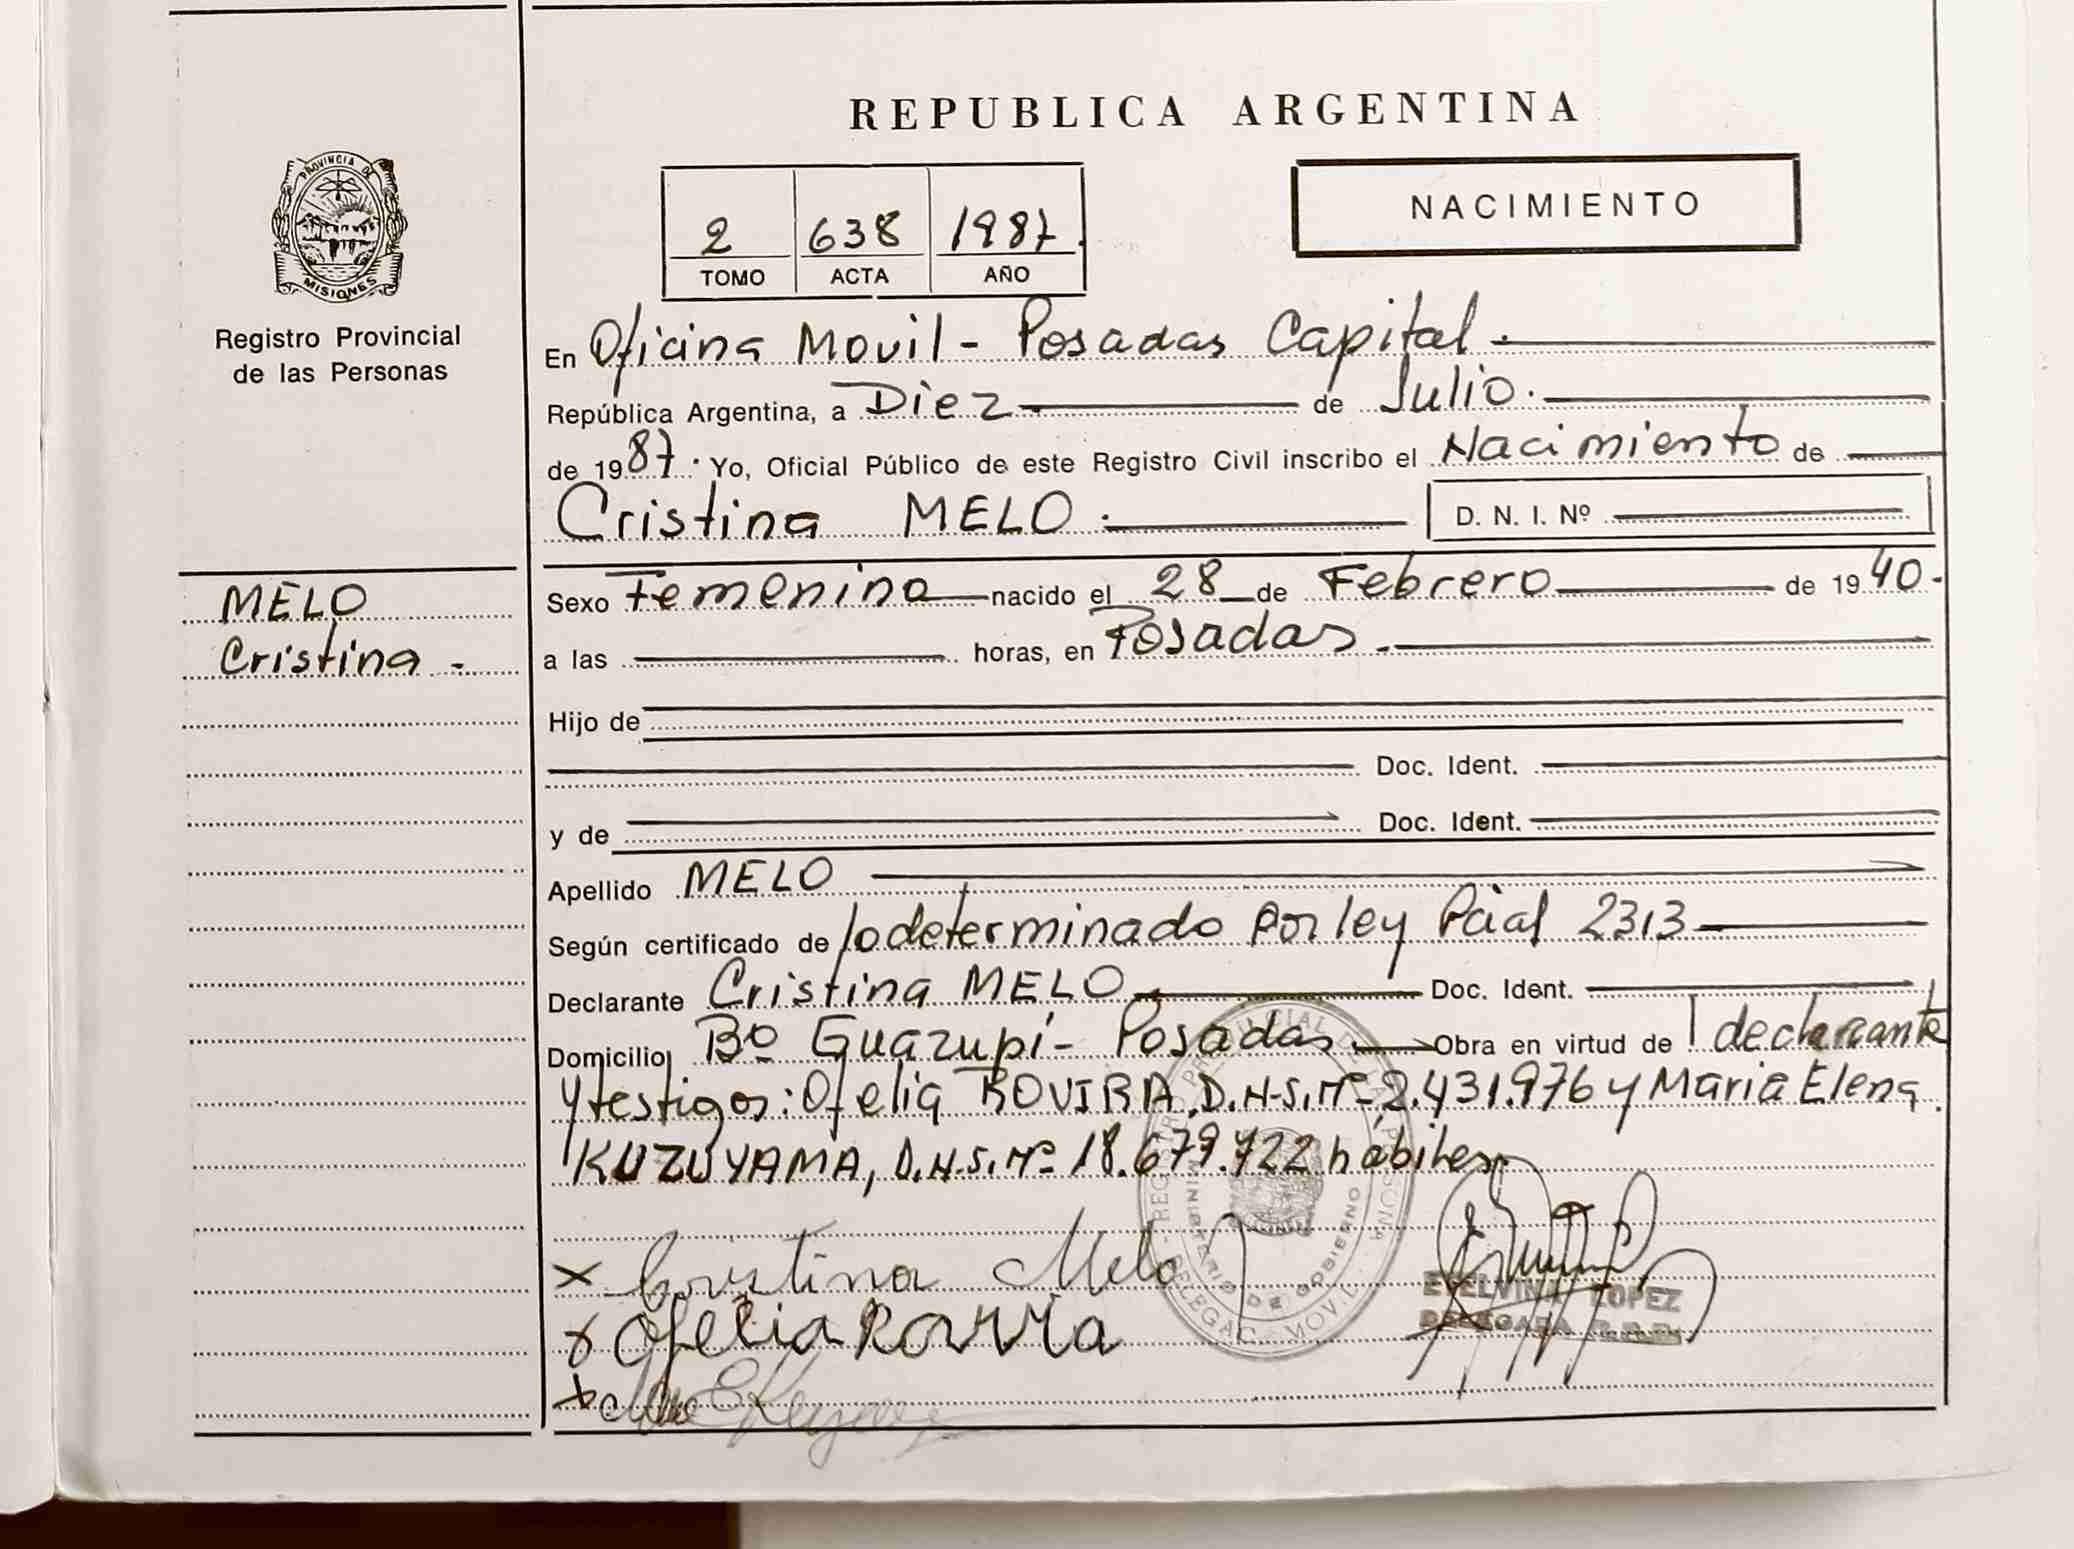 REPUBLICA ARGENTINA
PROVINCIA DE
MISIONES
Registro Provincial
de las Personas
2 638 1987
TOMO ACTA AÑO
NACIMIENTO
En Oficina Movil - Posadas Capital.
República Argentina, a Diez de Julio.
de 1987. Yo, Oficial Público de este Registro Civil inscribo el Nacimiento de
Cristina MELO. D. N. I. Nº
MELO
Cristina -
Sexo Femenino nacido el 28 de Febrero de 1940.
a las horas, en Posadas.
Hijo de
Doc. Ident.
y de Doc. Ident.
Apellido MELO
Según certificado de lo determinado por ley Pcial 2313
Declarante Cristina MELO Doc. Ident.
Domicilio Bº Guazupi - Posadas. Obra en virtud de l declarante
y testigos: Ofelia ROVIRA, D.N.I. Nº 2.431.976 y Maria Elena
KUZUYAMA, D.N.I. Nº 18.679.722 hábiles.
x Cristina Melo
x Ofelia Rovira
x
ETELVINA LOPEZ
DELEGADA R.P.P.
REGISTRO PROVINCIAL DE LAS PERSONAS
MINISTERIO DE GOBIERNO
DELEGAC. MOVIL